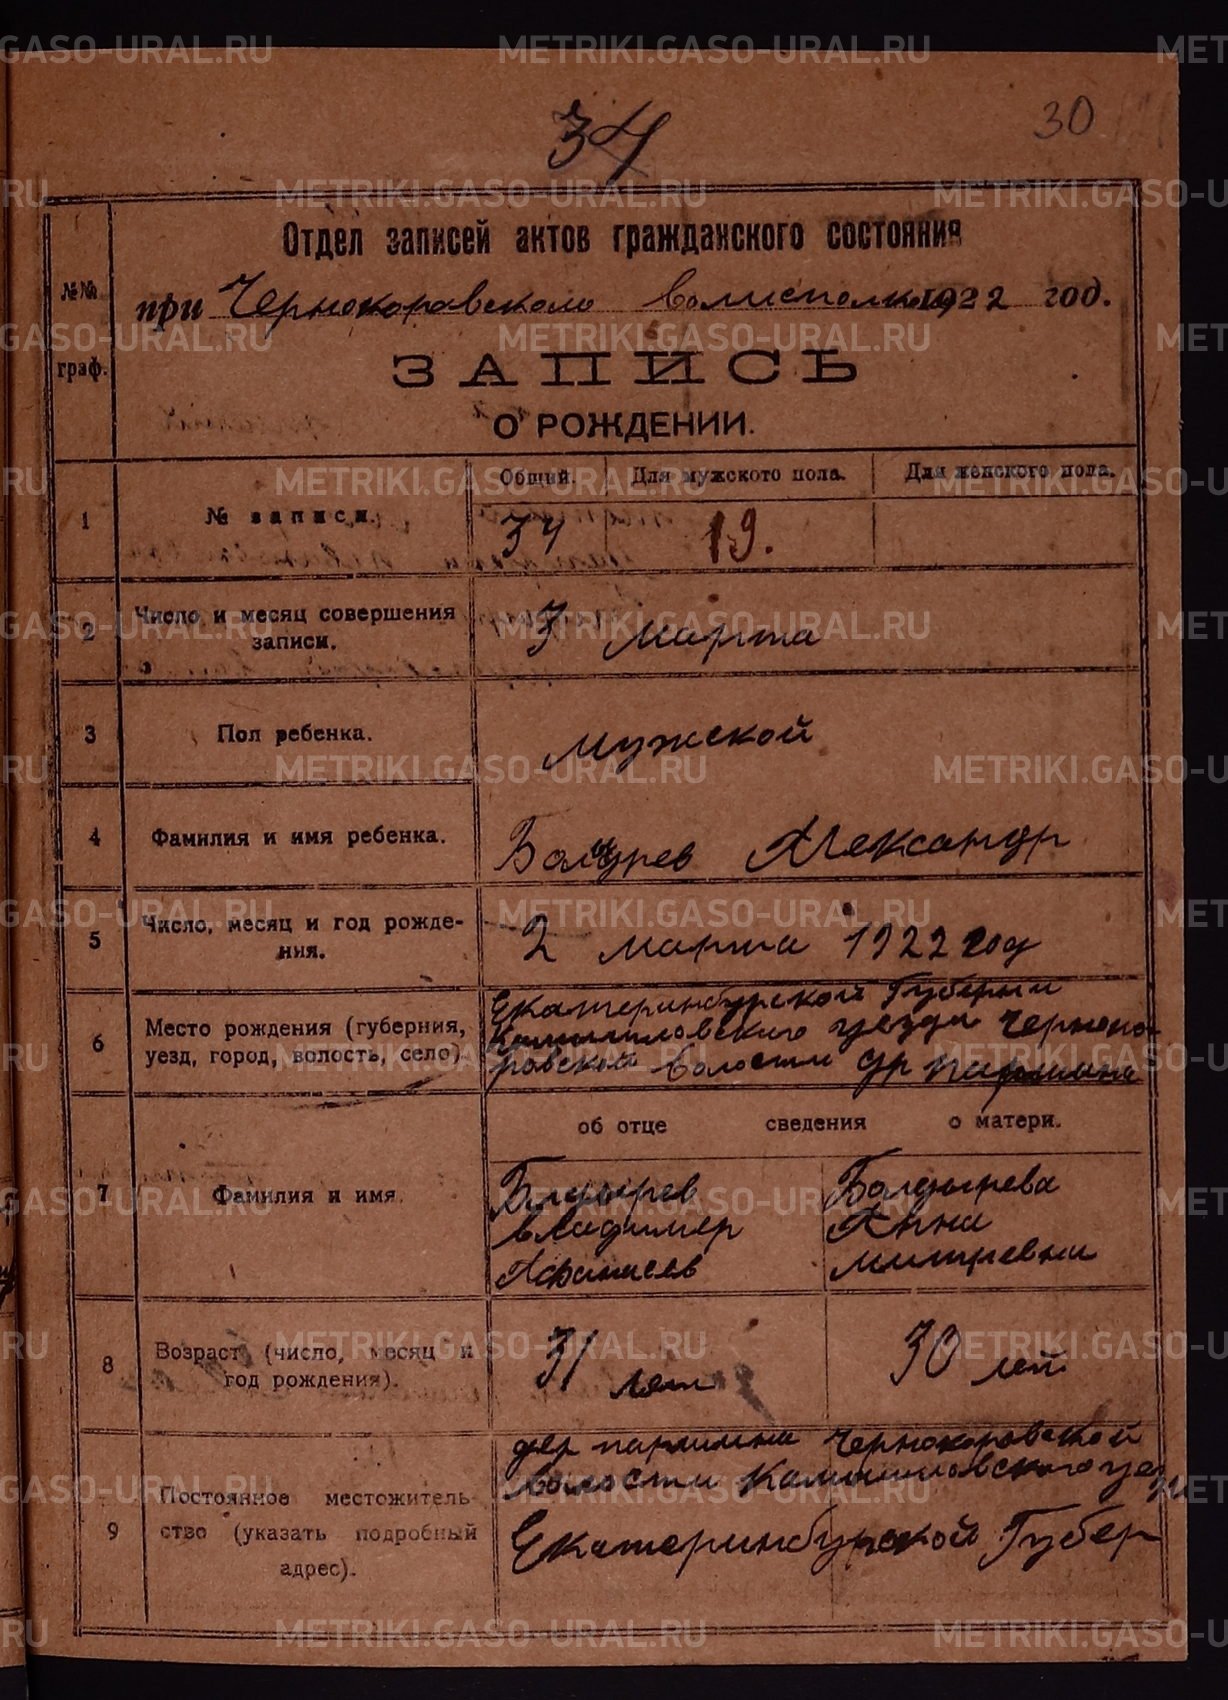 34
30
Отдел записей актов гражданского состояния
№№ граф.
при Чернокоровского волисполкома 1922 год.
ЗАПИСЬ
О РОЖДЕНИИ.
Общий. Для мужского пола. Для женского пола.
1 № записи. 34 19.
2 Число и месяц совершения записи. 3 марта
3 Пол ребенка. мужской
4 Фамилия и имя ребенка. Александр
5 Число, месяц и год рождения. 2 марта 1922 год
6 Место рождения (губерния, уезд, город, волость, село)
Екатеринбургской Губернии
Камышловского уезда Черноко-
ровской волости др
об отце сведения о матери.
7 Фамилия и имя
Болдырев Болдырева
Владимер Анна
Афанасев митревна
8 Возраст (число, месяц и год рождения). 31 лет 30 лет
9 Постоянное местожительство (указать подробный адрес).
дер Чернокоровской
волости Камышловского уезда
Екатеринбургской Губер
METRIKI.GASO-URAL.RU